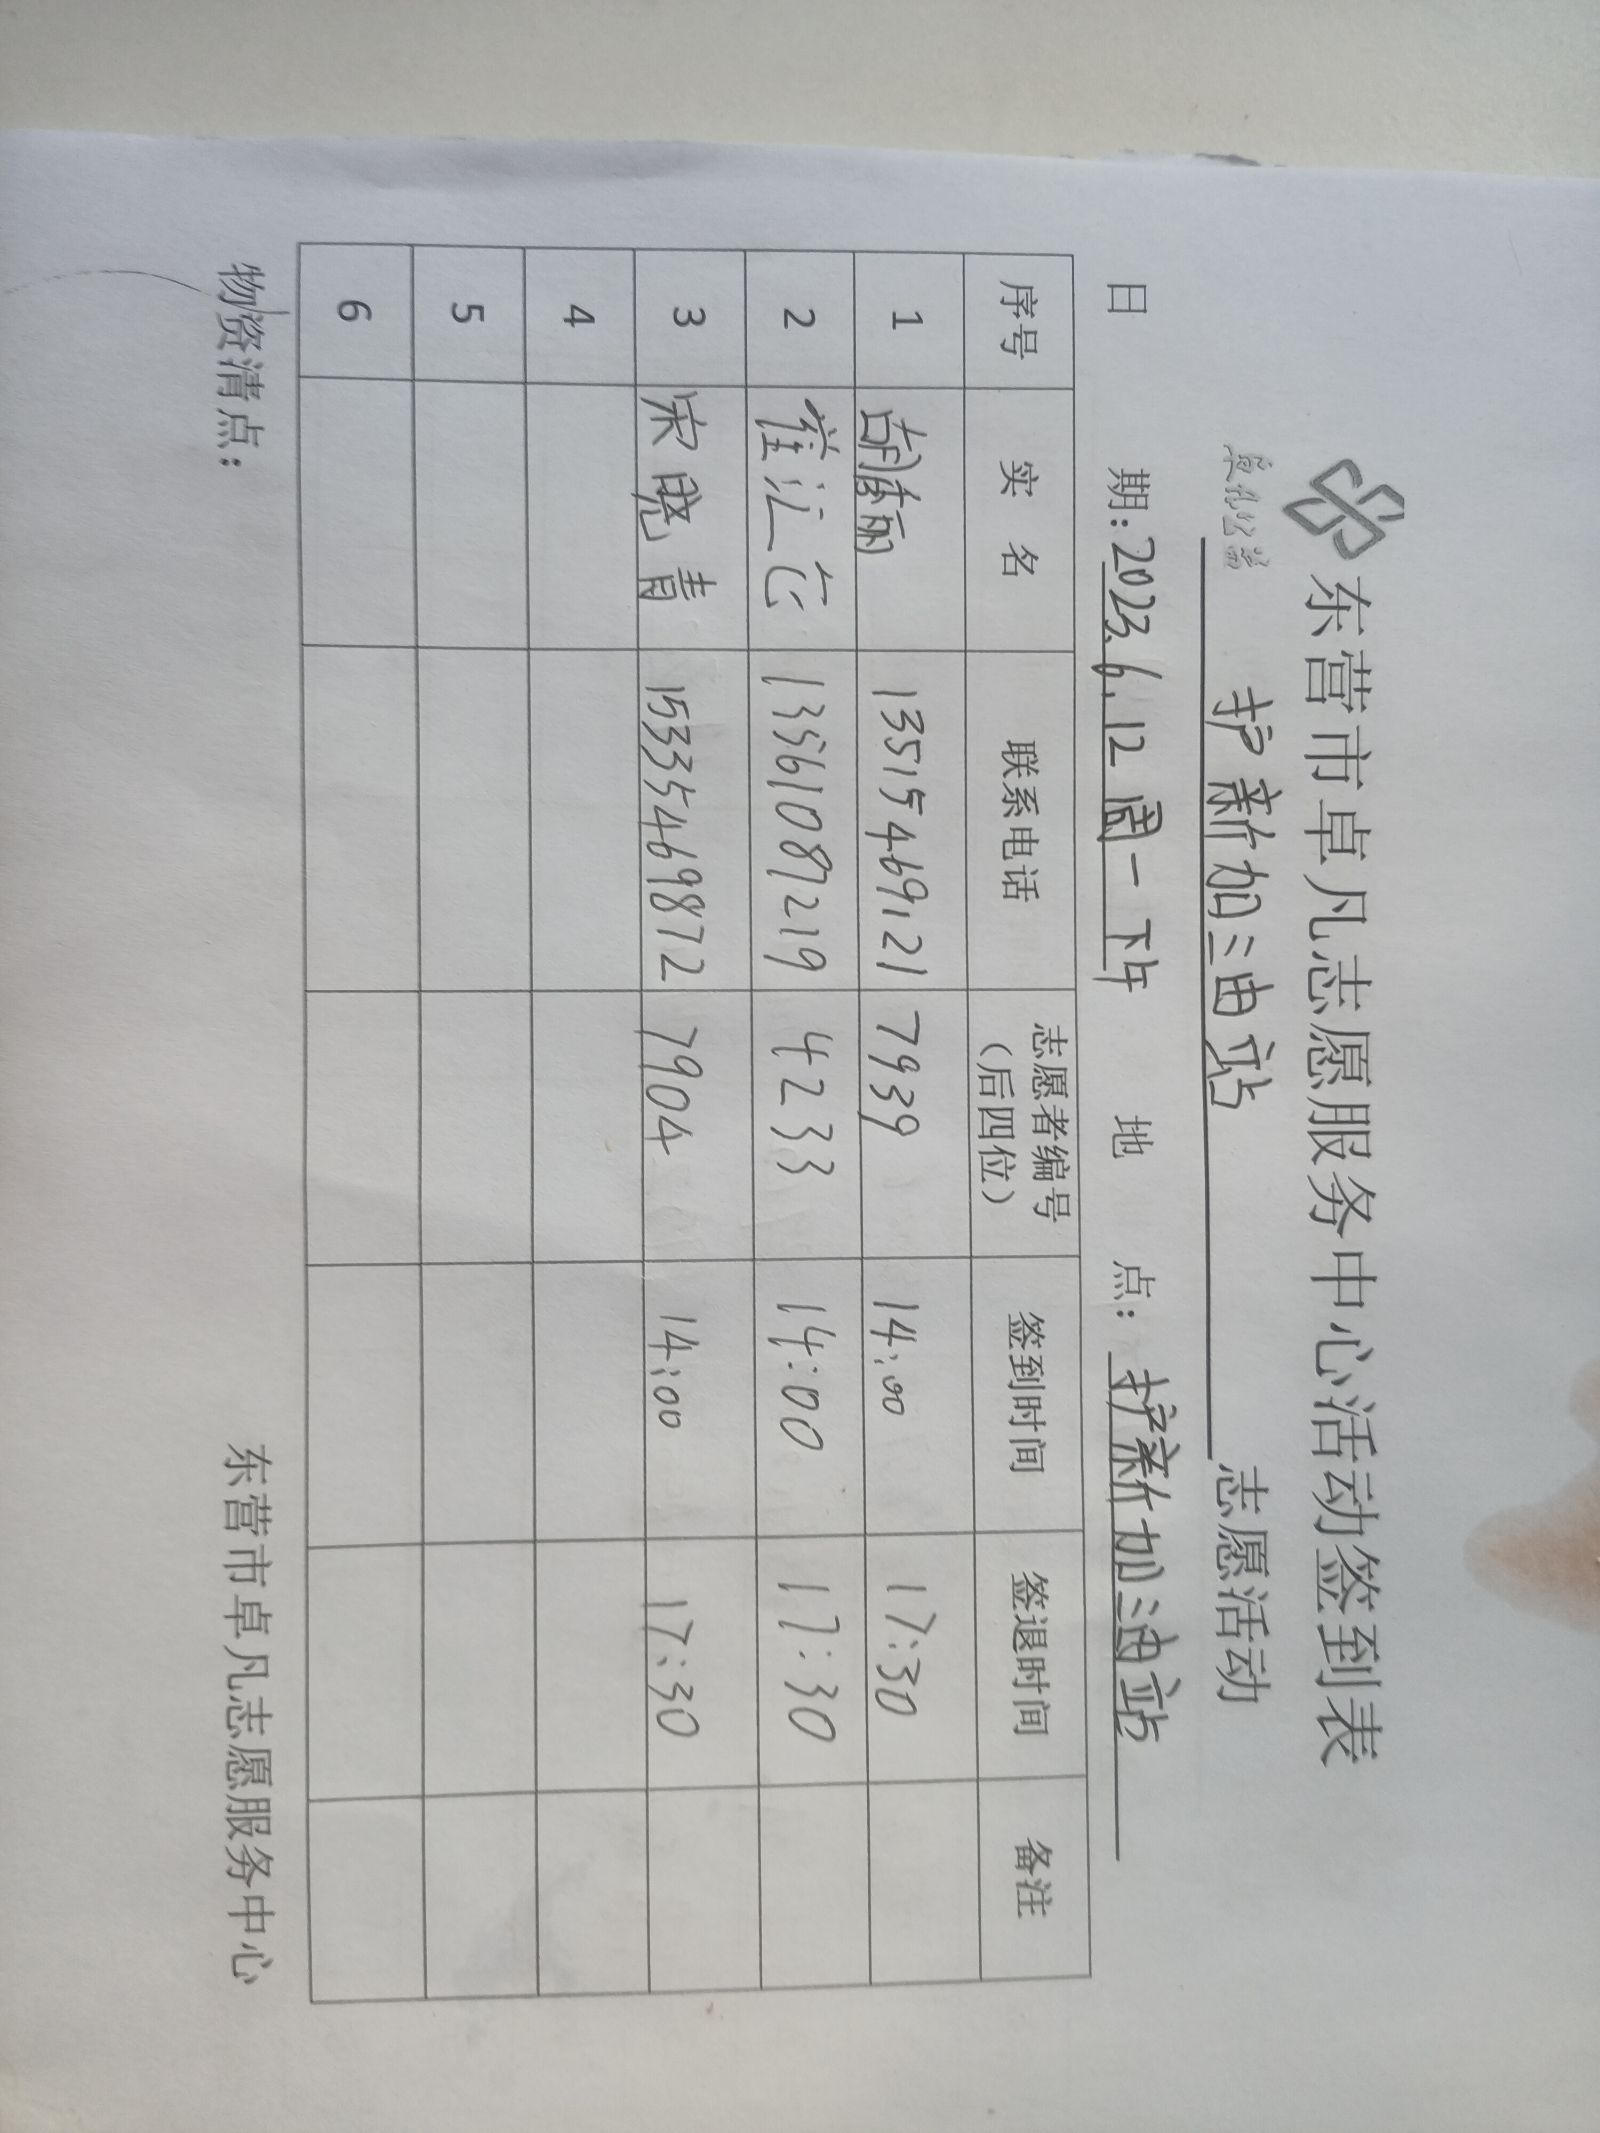 东营市卓凡志愿服务中心活动签到表
卓凡公益 护新加油站 志愿活动
日 期:2023.6.12 周一下午 地 点: 护新加油站
序号 实 名 联系电话 志愿者编号（后四位） 签到时间 签退时间 备注
1 胡秀丽 13515469121 7939 14:00 17:30
2 崔江芯 13561087219 4233 14:00 17:30
3 宋晓青 15335469872 7904 14:00 17:30
4
5
6
物资清点：
东营市卓凡志愿服务中心